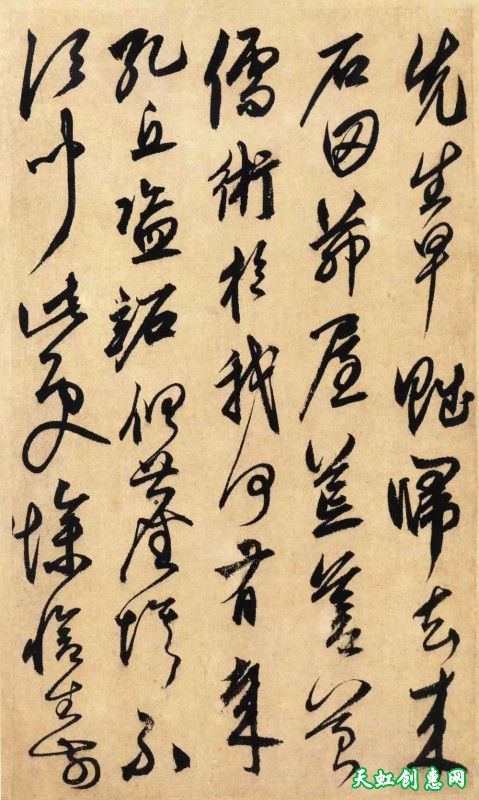 先生早賦歸去来
石田茅屋荒蒼苔
儒術於我何有哉
孔丘盗跖俱塵埃不
須聞此意惨愴生前
天虹创惠网